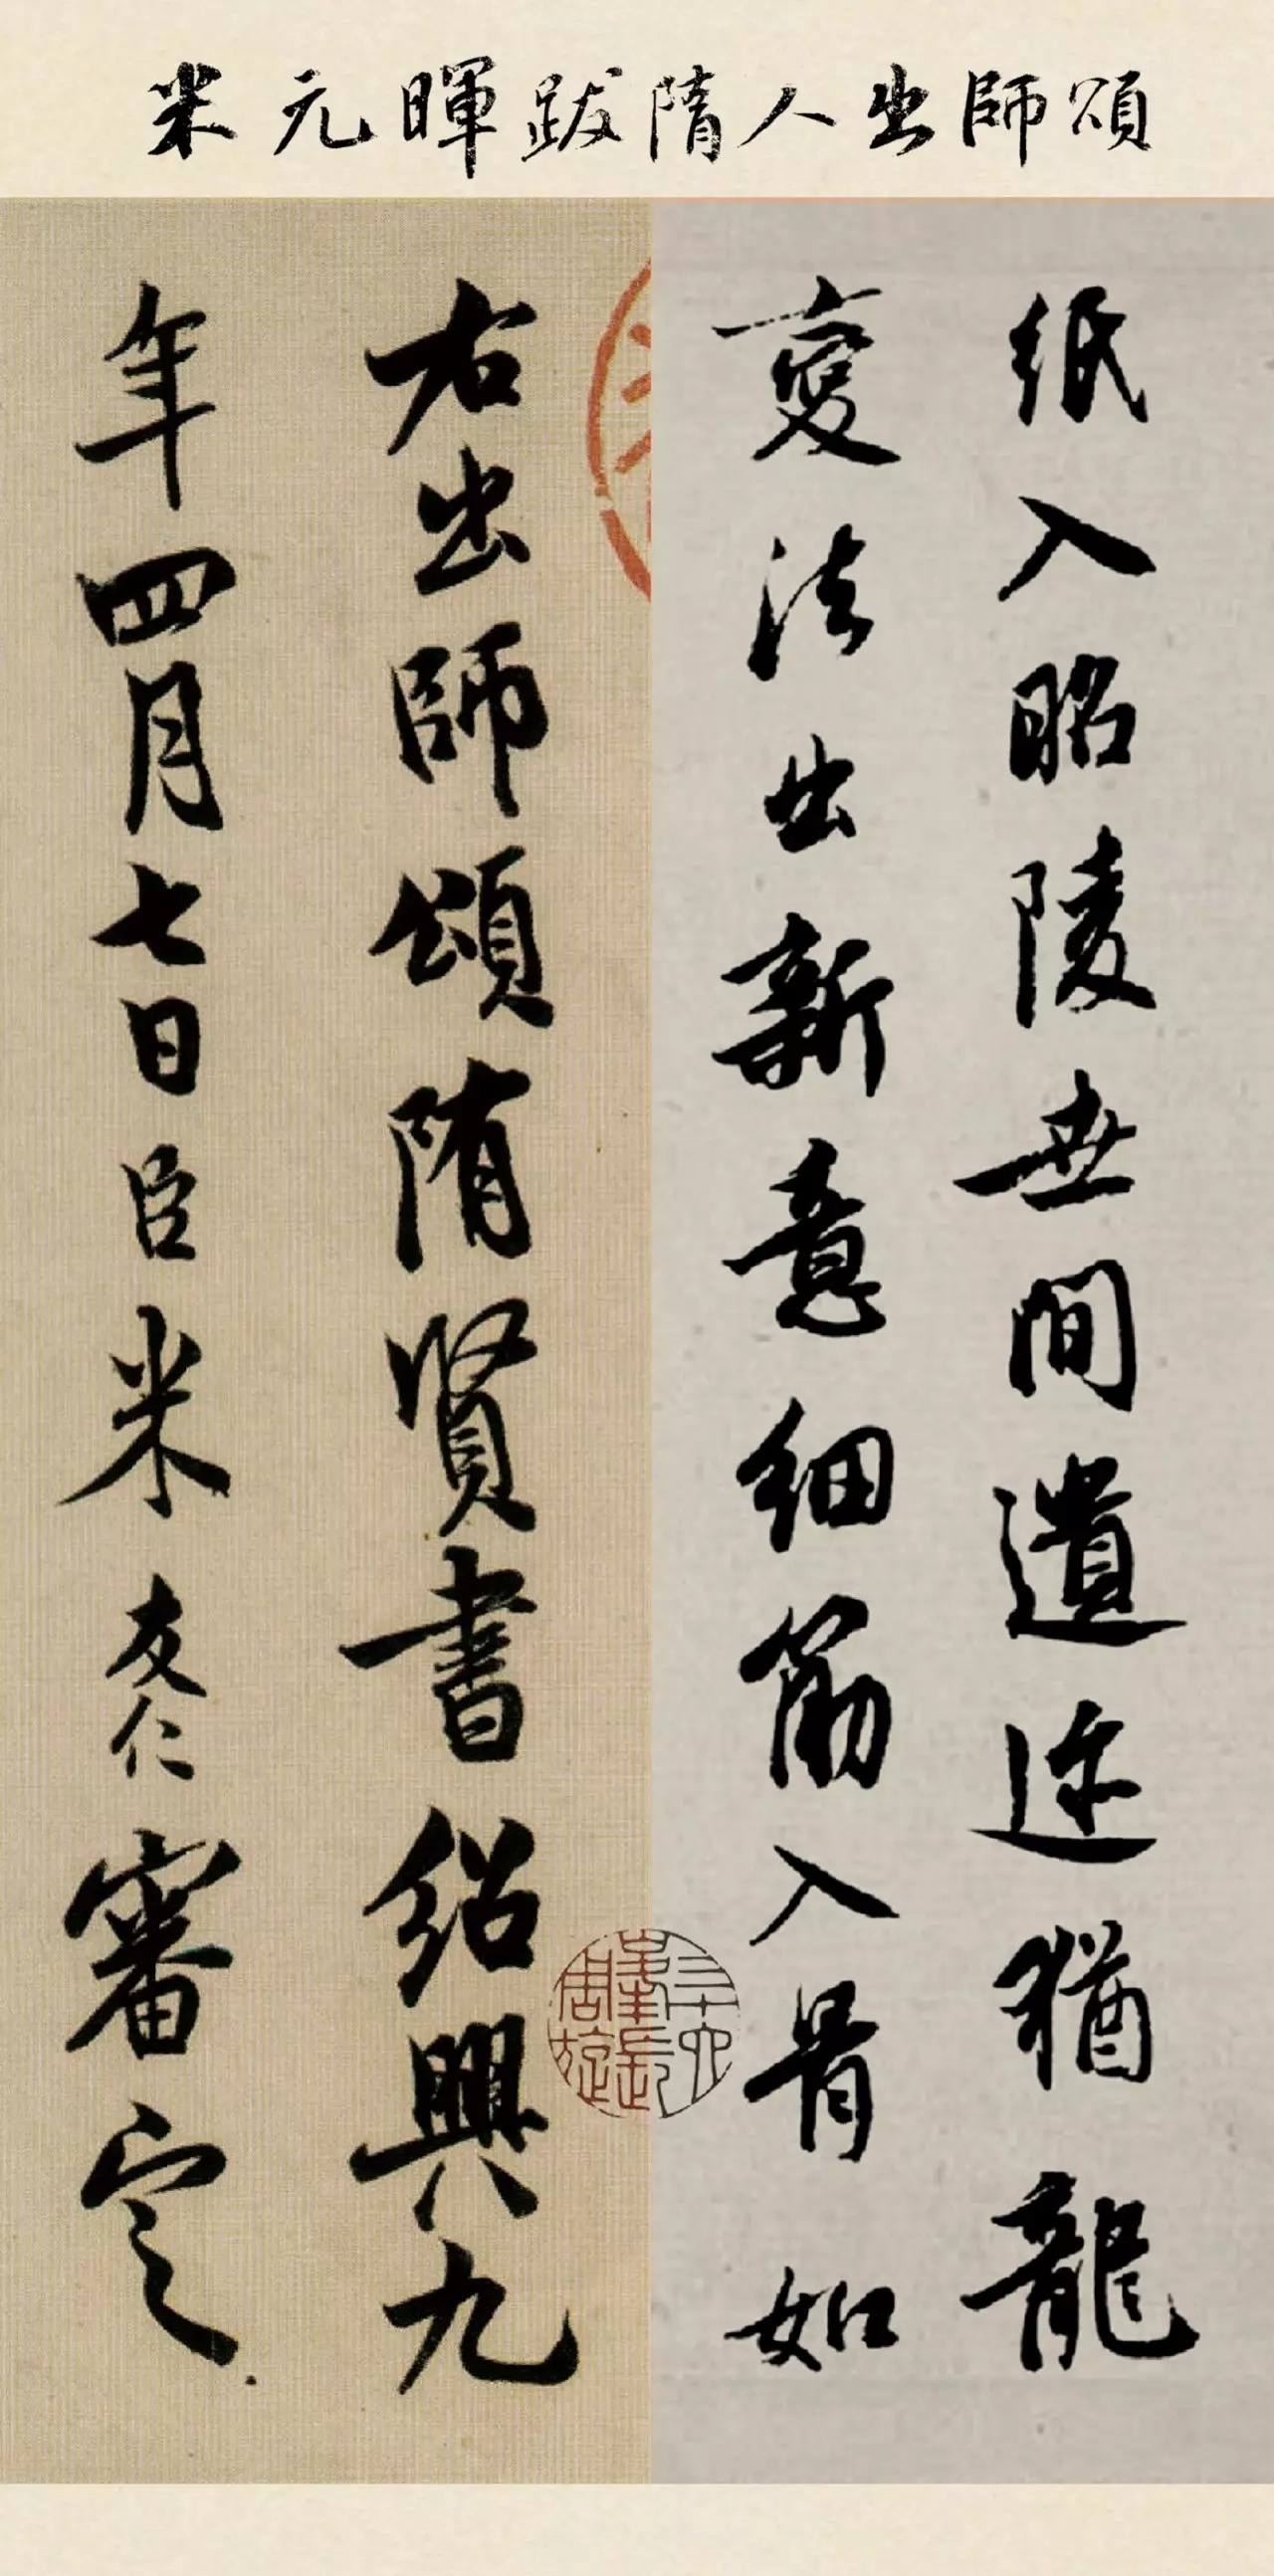 米元暉跋隋人出師頌
紙入昭陵世間遺迹猶龍
變法出新意細筋入骨如
右出師頌隋賢書紹興九
年四月七日臣米友仁審定
三十六
峯長
周旋